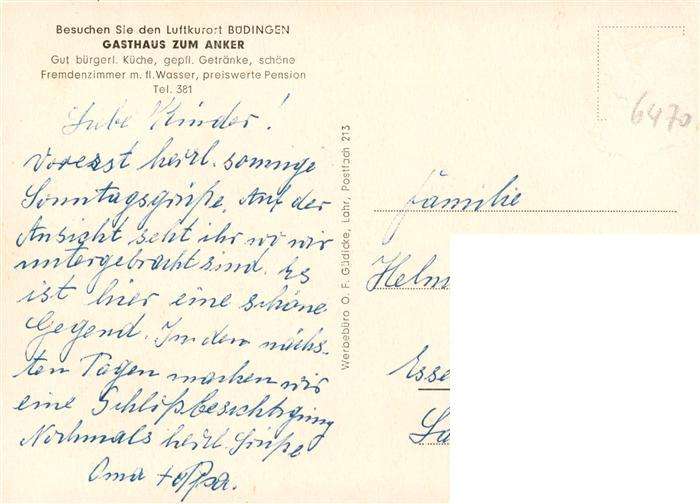 Besuchen Sie den Luftkurort BÜDINGEN
GASTHAUS ZUM ANKER
Gut bürgerl. Küche, gepfl. Getränke, schöne
Fremdenzimmer m. fl. Wasser, preiswerte Pension
Tel. 381
Liebe Kinder!
Vorerst herzl. sonnige
Sonntagsgrüße. Auf der
Ansicht seht ihr wo wir
untergebracht sind. Es
ist hier eine schöne
Gegend. In den nächs-
ten Tagen machen wir
eine Schloßbesichtigung
Nochmals herzl. Grüße
Oma + Oppa.
Werbebüro O. F. Güdicke, Lahr, Postfach 213
6470
Familie
Helm
Esse